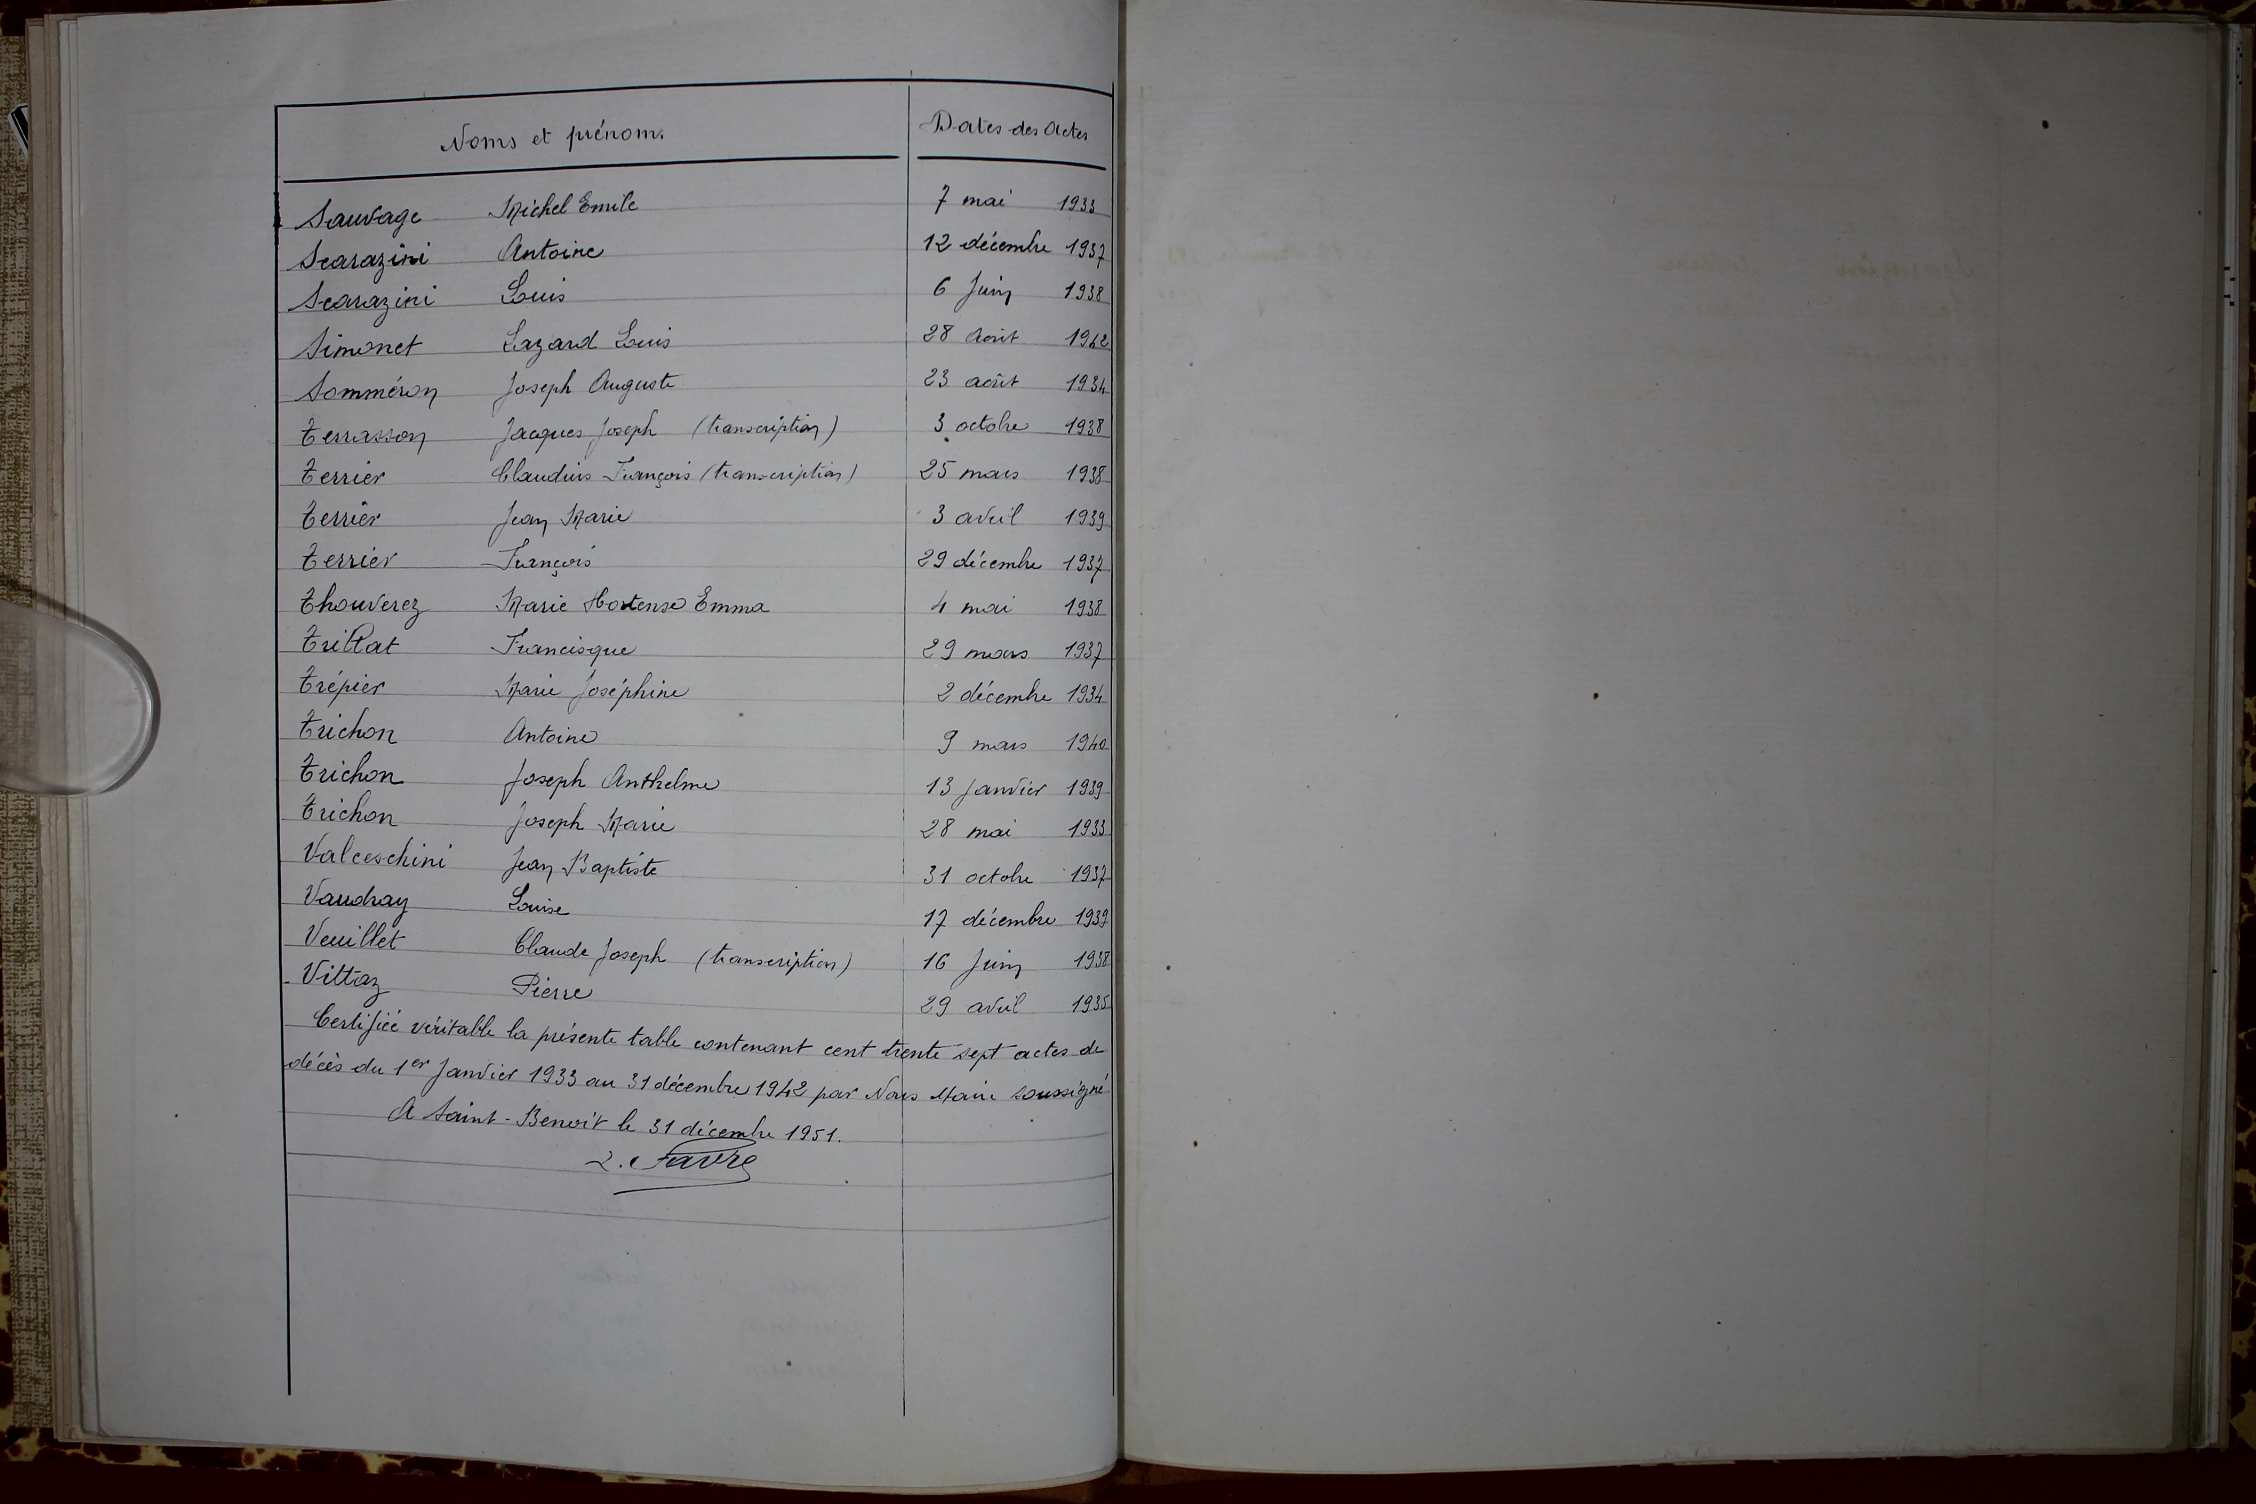 Noms et prénoms Dates des Actes
Sauvage Michel Emile 7 mai 1933
Scarazini Antoine 12 décembre 1937
Scarazini Louis 6 Juin 1938
Simonet Lazard Louis 28 Août 1942
Somméron Joseph Auguste 23 août 1934
Terrasson Jacques Joseph (transcription) 3 octobre 1938
Terrier Claudius François (transcription) 25 mars 1938
Terrier Jean Marie 3 avril 1939
Terrier François 29 décembre 1937
Thouverez Marie Hortense Emma 4 mai 1938
Trillat Francisque 29 mars 1937
Trépier Marie Joséphine 2 décembre 1934
Trichon Antoine 9 mars 1940
Trichon Joseph Anthelme 13 Janvier 1939
Trichon Joseph Marie 28 mai 1933
Valceschini Jean Baptiste 31 octobre 1937
Vaudray Louise 17 décembre 1939
Veuillet Claude Joseph (transcription) 16 Juin 1938
Vittaz Pierre 29 avril 1935
Certifiée véritable la présente table contenant cent trente sept actes de
décès du 1er Janvier 1933 au 31 décembre 1942 par Nous Maire soussigné
A Saint-Benoit le 31 décembre 1951.
L. Favre